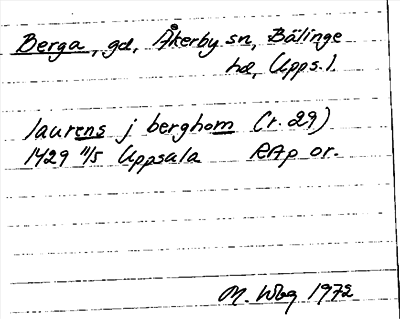 Berga, gd, Åkerby sn, Bälinge
hd, Upps. l.
laurens j berghom (r. 29)
1429 11/5 Uppsala RAp or.
M. Wbg 1972